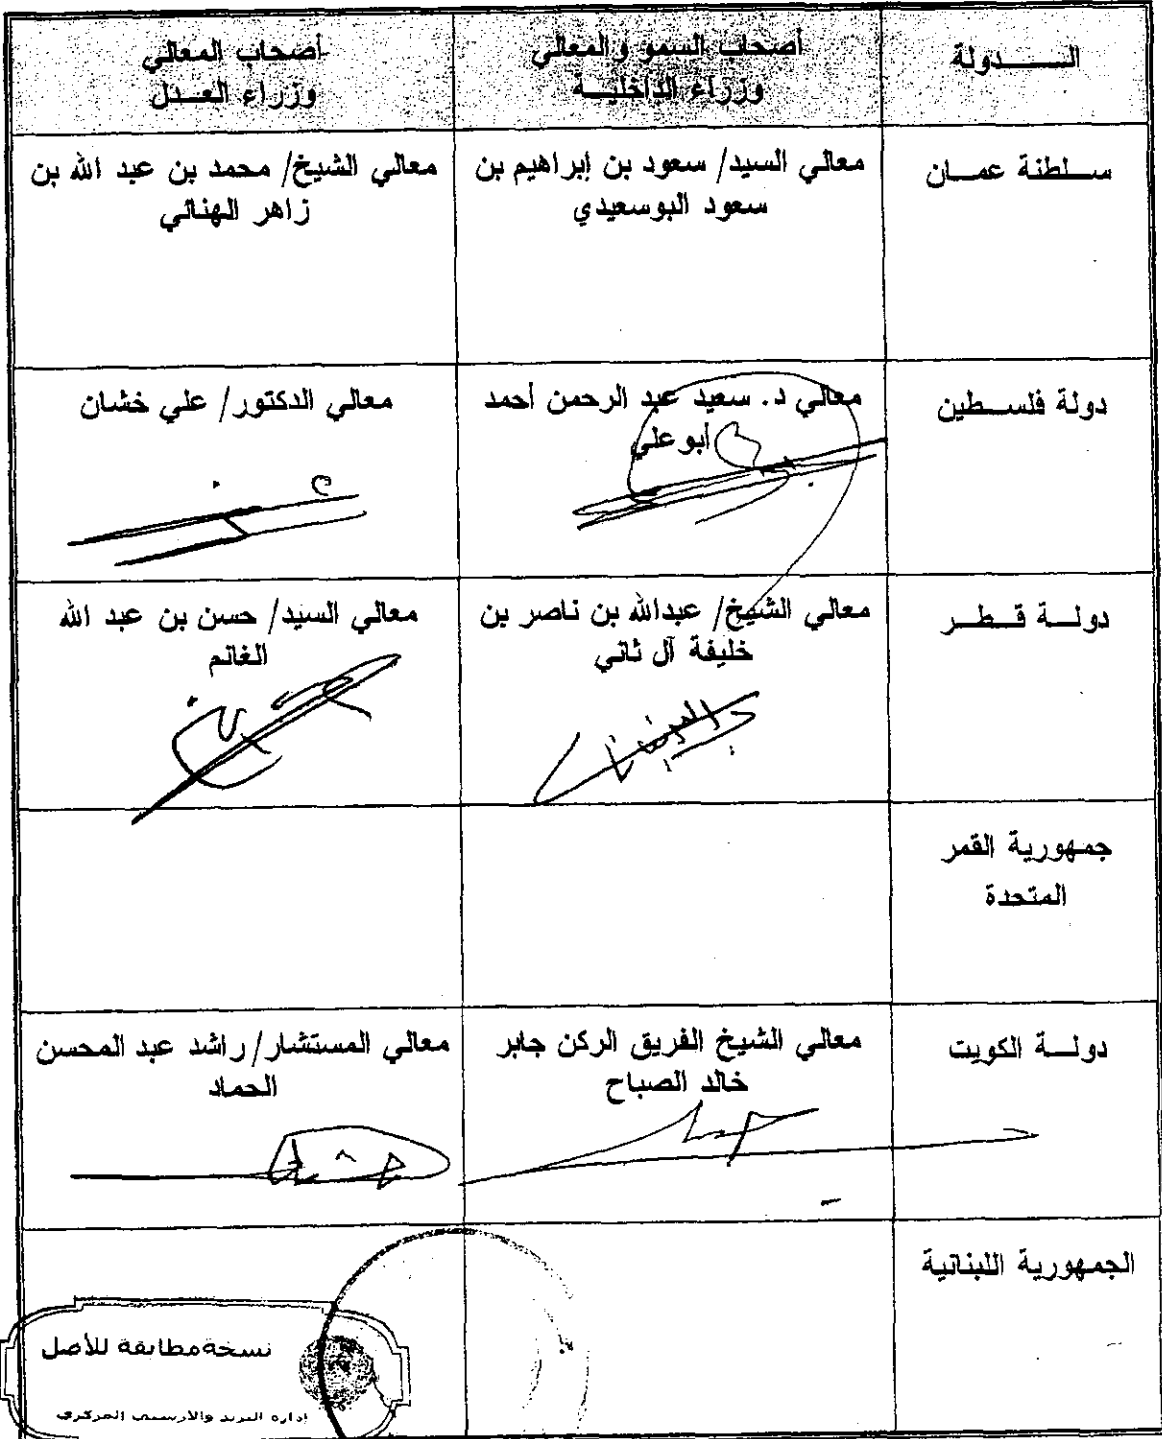 الـــــدولة
أصحاب السمو والمعالي
وزراء الداخليـــة
أصحاب المعالي
وزراء العـــدل
ســـلطنة عمـــان
معالي السيد/ سعود بن إبراهيم بن
سعود البوسعيدي
معالي الشيخ/ محمد بن عبد الله بن
زاهر الهنائي
دولة فلســـطين
معالي د. سعيد عبد الرحمن أحمد
أبو علي
معالي الدكتور/ علي خشان
دولـــة قـــطـــر
معالي الشيخ/ عبدالله بن ناصر بن
خليفة آل ثاني
معالي السيد/ حسن بن عبد الله
الغانم
جمهورية القمر
المتحدة
دولـــة الكويت
معالي الشيخ الفريق الركن جابر
خالد الصباح
معالي المستشار/ راشد عبد المحسن
الحماد
الجمهورية اللبنانية
نسخة مطابقة للأصل
إدارة البريد والأرشيف المركزي